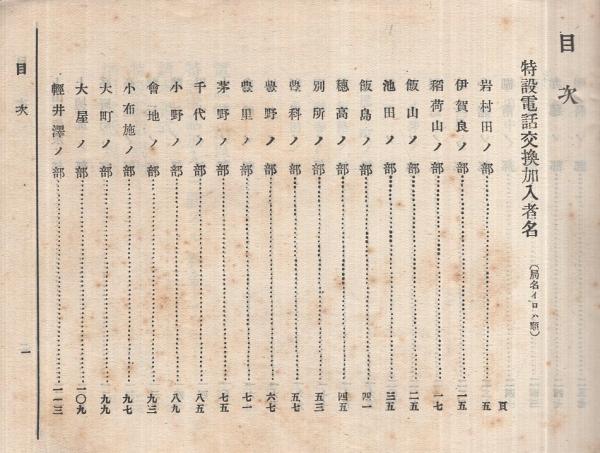 目次
特設電話交換加入者名（局名イロハ順）
頁
岩村田ノ部 五
伊賀良ノ部 一五
稻荷山ノ部 一七
飯山ノ部 二五
池田ノ部 三五
飯島ノ部 四一
穗高ノ部 四五
別所ノ部 五三
豐科ノ部 五七
豐野ノ部 六七
豐里ノ部 七一
茅野ノ部 七五
千代ノ部 八五
小野ノ部 八九
會地ノ部 九三
小布施ノ部 九七
大町ノ部 九九
大屋ノ部 一〇九
輕井澤ノ部 一一三
目次
一